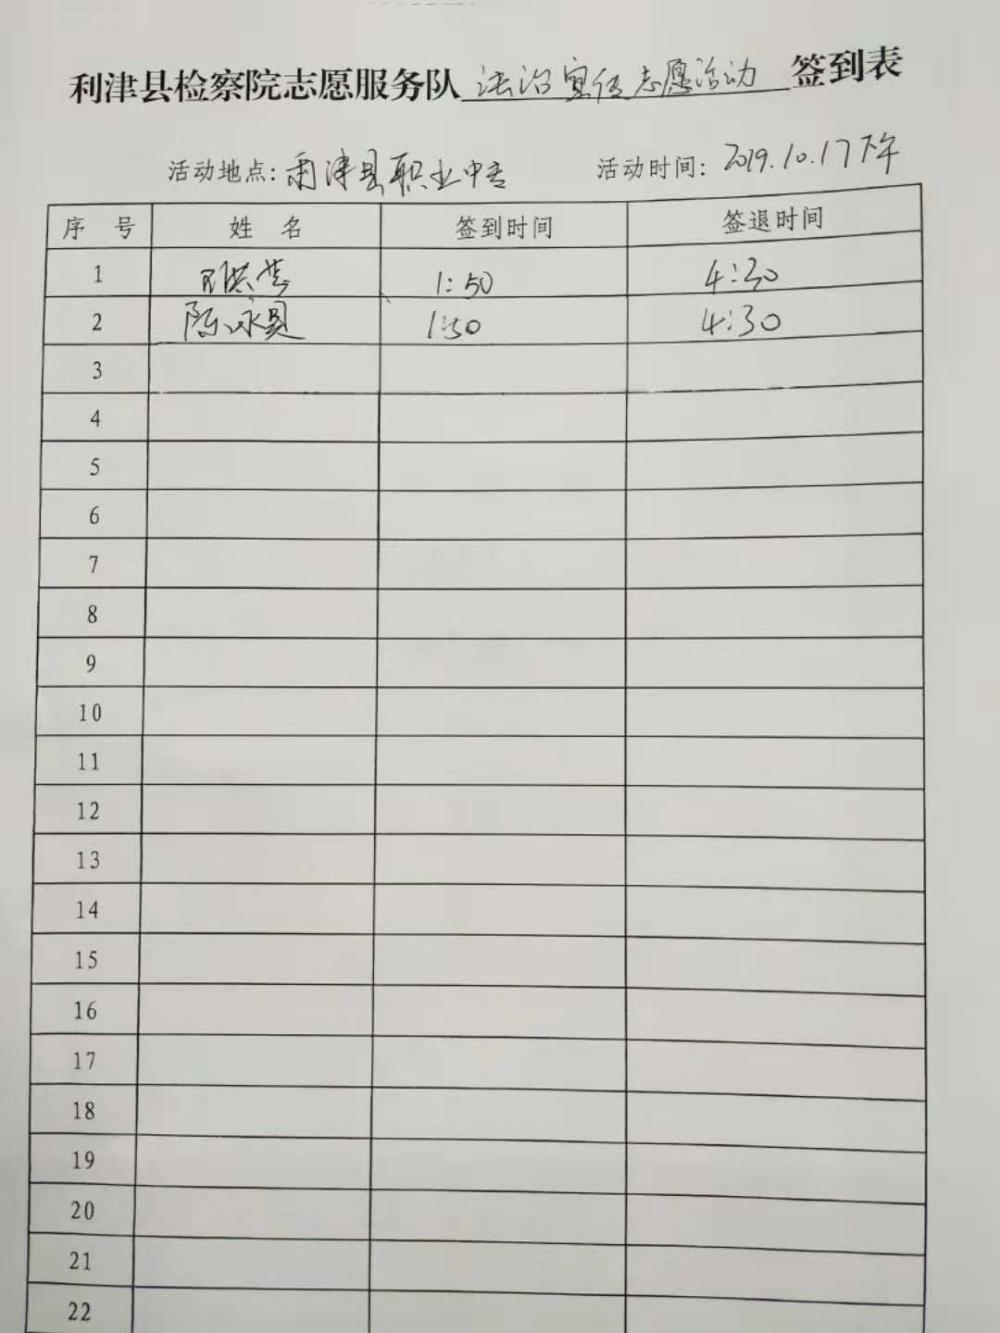 利津县检察院志愿服务队 法治宣传志愿活动 签到表
活动地点: 利津县职业中专 活动时间: 2019.10.17下午
序 号 姓 名 签到时间 签退时间
1 1:50 4:30
2 陈永真 1:50 4:30
3
4
5
6
7
8
9
10
11
12
13
14
15
16
17
18
19
20
21
22